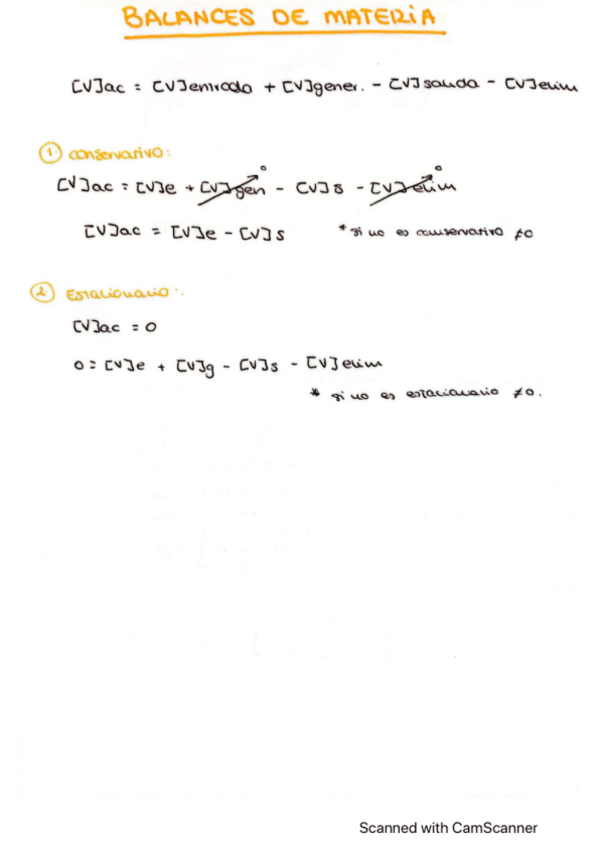 BALANCES DE MATERIA
[V]ac = [V]entrada + [V]gener. - [V]salida - [V]elim
1. conservativo:
[V]ac = [V]e + [V]gen - [V]s - [V]elim
0 0
[V]ac = [V]e - [V]s * si no es conservativo ≠0
2. Estacionario:
[V]ac = 0
0 = [V]e + [V]g - [V]s - [V]elim
* si no es estacionario ≠0.
Scanned with CamScanner